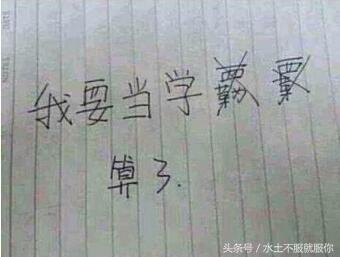 我要当学
算了.
头条号/水土不服就服你